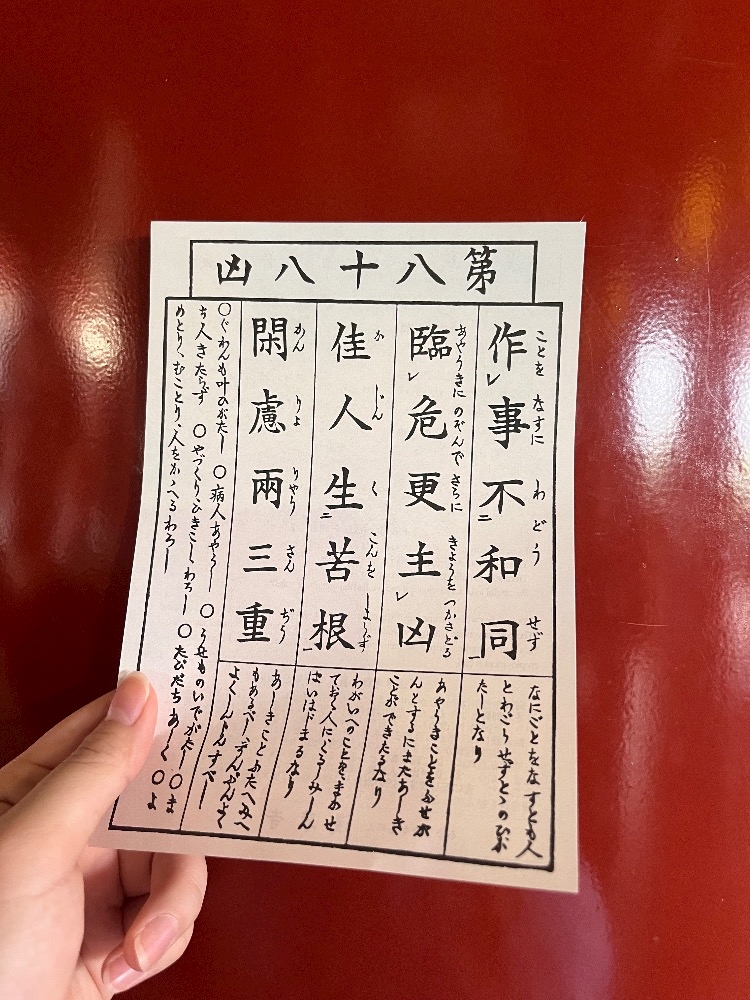 第八十八凶
作事不和同
ことを なすに わ どう せず
なにごとをなすとも人
とわごうせずとゝのひが
たしとなり
臨危更主凶
あやうきに のぞんで さらに きようを つかさどる
あやうきことをふせが
んとするにまたあしき
ことができたるなり
佳人生苦根
か じん く こんを しようず
わがいへのことをまかせ
ておく人にくるしみしん
ぱいはじまるなり
閑慮兩三重
かん りよ りやう さん ぢう
あしきことふたへみへ
もあるべし、ずんぶんよく
よくしんりんすべし
○ぐわんも叶ひがたし ○病人あやうし ○うせものいでがたし ○ま
ち人きたらず ○やづくり、ひきこしわろし ○たびだちあしく ○よ
めとり、むことり、人をかゝへるわろし